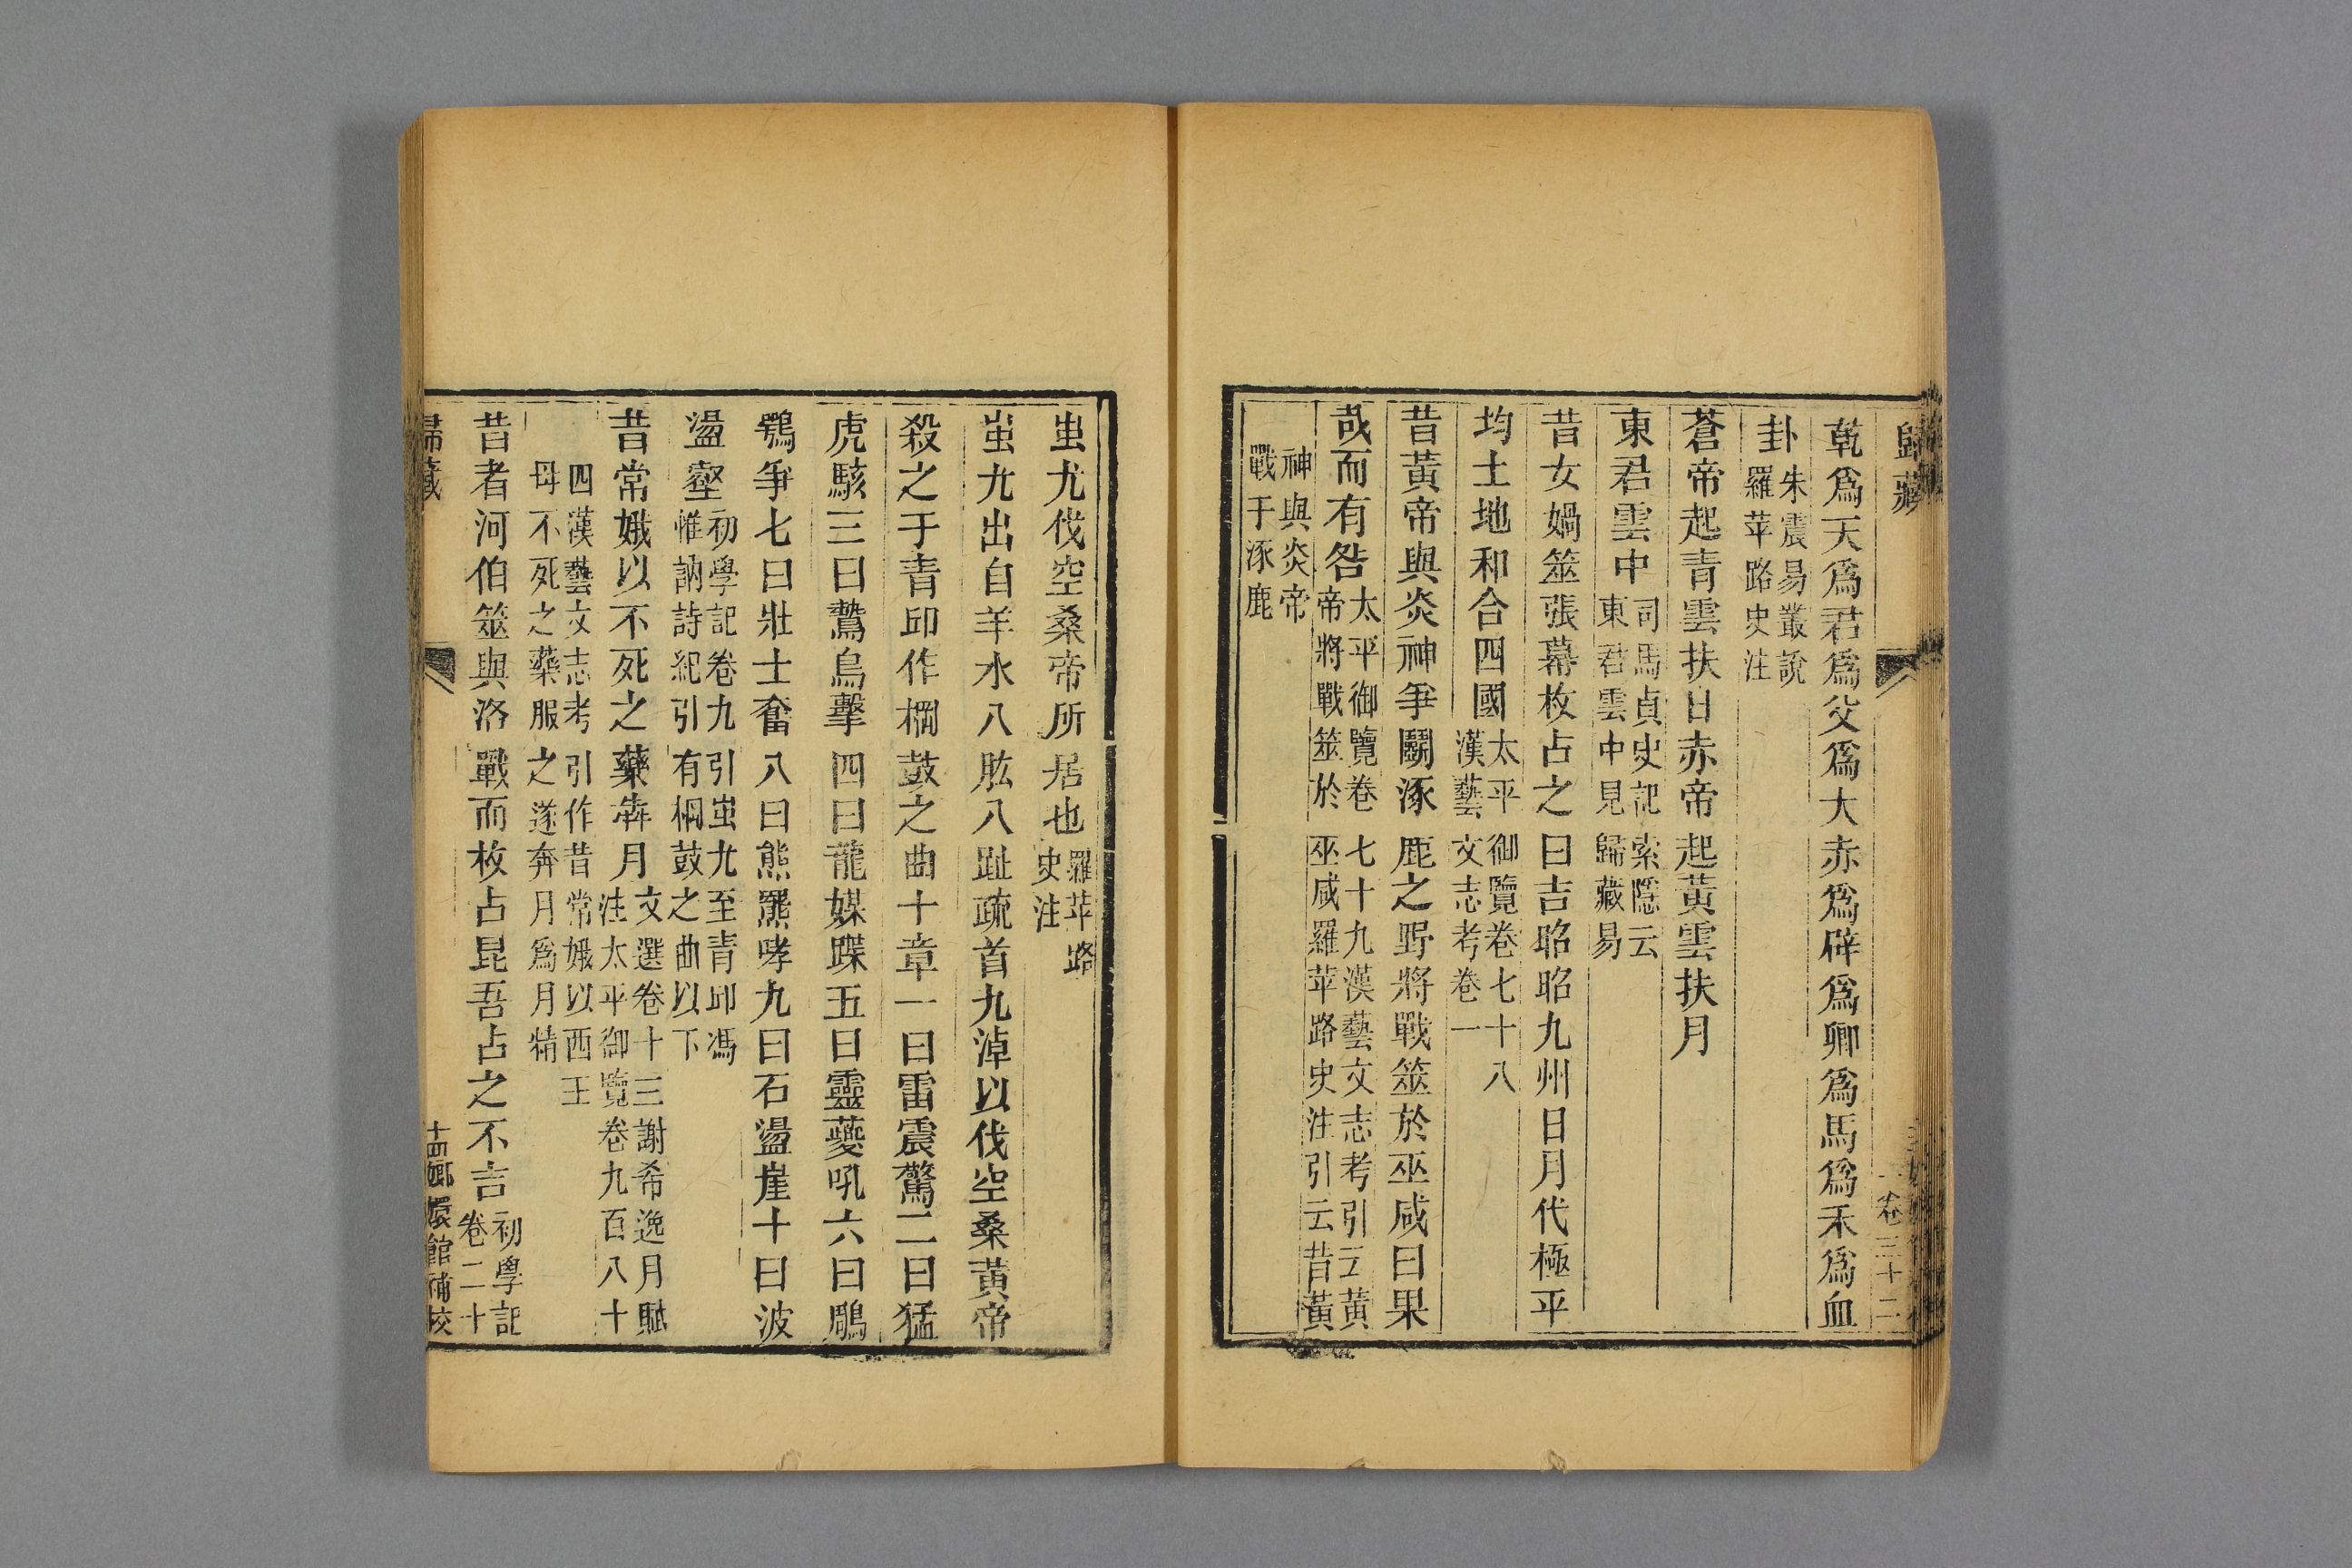 歸藏
卷三十二
乾爲天爲君爲父爲大赤爲辟爲卿爲馬爲禾爲血
卦朱震易叢說
羅苹路史注
蒼帝起青雲扶日赤帝起黃雲扶月
東君雲中司馬貞史記索隱云
東君雲中見歸藏易
昔女媧筮張幕枚占之曰吉昭昭九州日月代極平
均土地和合四國太平御覽卷七十八
漢藝文志考卷一
昔黃帝與炎神爭鬭涿鹿之野將戰筮於巫咸曰果
哉而有咎太平御覽卷七十九漢藝文志考引云黃
帝將戰筮於巫咸羅苹路史注引云昔黃
神與炎帝
戰于涿鹿
蚩尤伐空桑帝所居也羅苹路
史注
蚩尤出自羊水八肱八趾疏首九淖以伐空桑黃帝
殺之于青邱作棡鼓之曲十章一曰雷震驚二曰猛
虎駭三曰鷙鳥擊四曰龍媒蹀五曰靈夔吼六曰鵰
鶚爭七曰壯士奮八曰熊羆哮九曰石盪崖十曰波
盪壑初學記卷九引蚩尤至青邱馮
惟訥詩紀引有棡鼓之曲以下
昔常娥以不死之藥犇月文選卷十三謝希逸月賦
注太平御覽卷九百八十
四漢藝文志考引作昔常娥以西王
母不死之藥服之遂奔月爲月精
昔者河伯筮與洛戰而枚占昆吾占之不吉初學記
卷二十
歸藏
十四
嫏嬛館補校